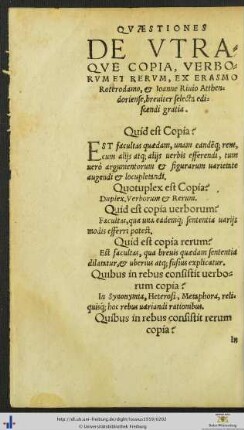 QVÆSTIONES
DE VTRA-
QVE COPIA, VERBO-
RVM ET RERVM, EX ERASMO
Rotterodamo, & Ioanne Riuio Atthen-
doriense, breuiter selecta edi-
scendi gratia.
Quid est Copia?
EST facultas quædam, unam eandẽq; rem,
cum alijs atq; alijs uerbis efferendi, tum
uerò argumentorum & figurarum uarietate
augendi & locupletandi.
Quotuplex est Copia?
Duplex, Verborum & Rerum.
Quid est copia uerborum?
Facultas, qua una eademq; sententia uarijs
modis efferri potest.
Quid est copia rerum?
Est facultas, qua breuis quædam sententia
dilatatur, & uberius atq; fusius explicatur.
Quibus in rebus consistit uerbo-
rum copia?
In Synonymia, Heterosi, Metaphora, reli-
quisq; hoc rebus uariandi rationibus.
Quibus in rebus consistit rerum
copia?
In
© Universitätsbibliothek Freiburg